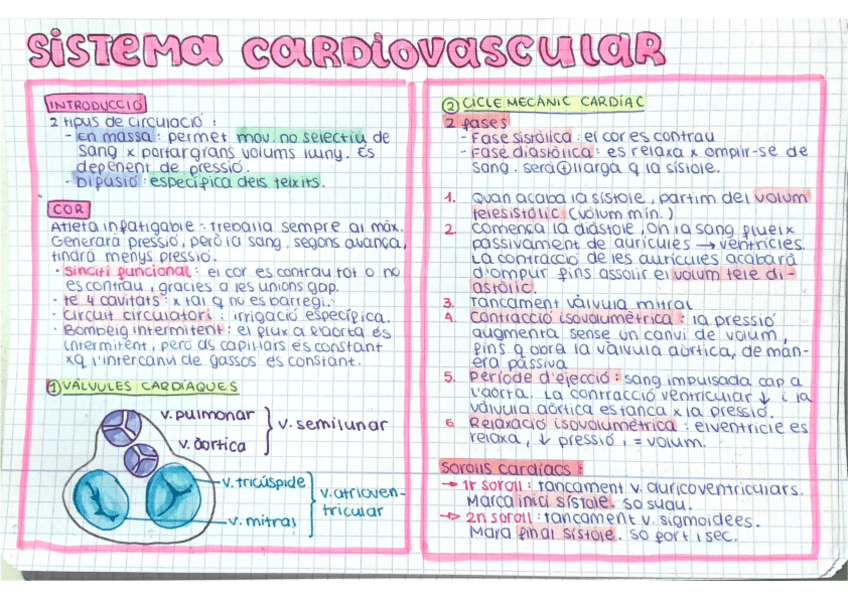 SISTEMA CARDIOVASCULAR
INTRODUCCIÓ
2 tipus de circulació :
- En massa : permet mov. no selectiu de
sang x portar grans volums lluny. És
depenent de pressió.
- Difusió : específica dels teixits.
COR
Atleta infatigable - treballa sempre al màx.
Generarà pressió, però la sang, segons avança,
tindrà menys pressió.
· Sinciti funcional : el cor es contrau tot o no
es contrau, gràcies a les unions gap.
· Té 4 cavitats : x tal q no es barregi.
· Circuit circulatori : irrigació específica.
· Bombeig intermitent : el flux a l'aorta és
intermitent, però als capil·lars és constant
xq l'intercanvi de gassos és constant.
1 VÀLVULES CARDÍAQUES
v. pulmonar
v. aòrtica
v. semilunar
v. tricúspide
v. mitras
v. atrioven-
tricular
2 CICLE MECÀNIC CARDÍAC
2 fases
- Fase sistòlica : el cor es contrau
- Fase diastòlica : es relaxa x omplir-se de
sang. serà + llarga q la sístole.
1. Quan acaba la sístole, partim del volum
telesistòlic (volum mín.)
2. Comença la diàstole, on la sang flueix
passivament de aurícules → ventrícles.
La contracció de les aurícules acabarà
d'ompur fins assolir el volum tele di-
astòlic.
3. Tancament vàlvula mitral
4. Contracció isovolumètrica : la pressió
augmenta sense un canvi de volum,
fins q obre la vàlvula aòrtica, de man-
era passiva
5. Període d'ejecció : sang impulsada cap a
l'aorta. La contracció ventricular ↓ i la
vàlvula aòrtica es tanca x la pressió.
6. Relaxació isovolumètrica : el ventricle es
relaxa, ↓ pressió i = volum.
Sorolls cardíacs :
→ 1r soroll : tancament v. auricoventriculars.
Marca inici sístole. So suau.
→ 2n soroll : tancament v. sigmoidees.
Mara final sístole. So fort i sec.